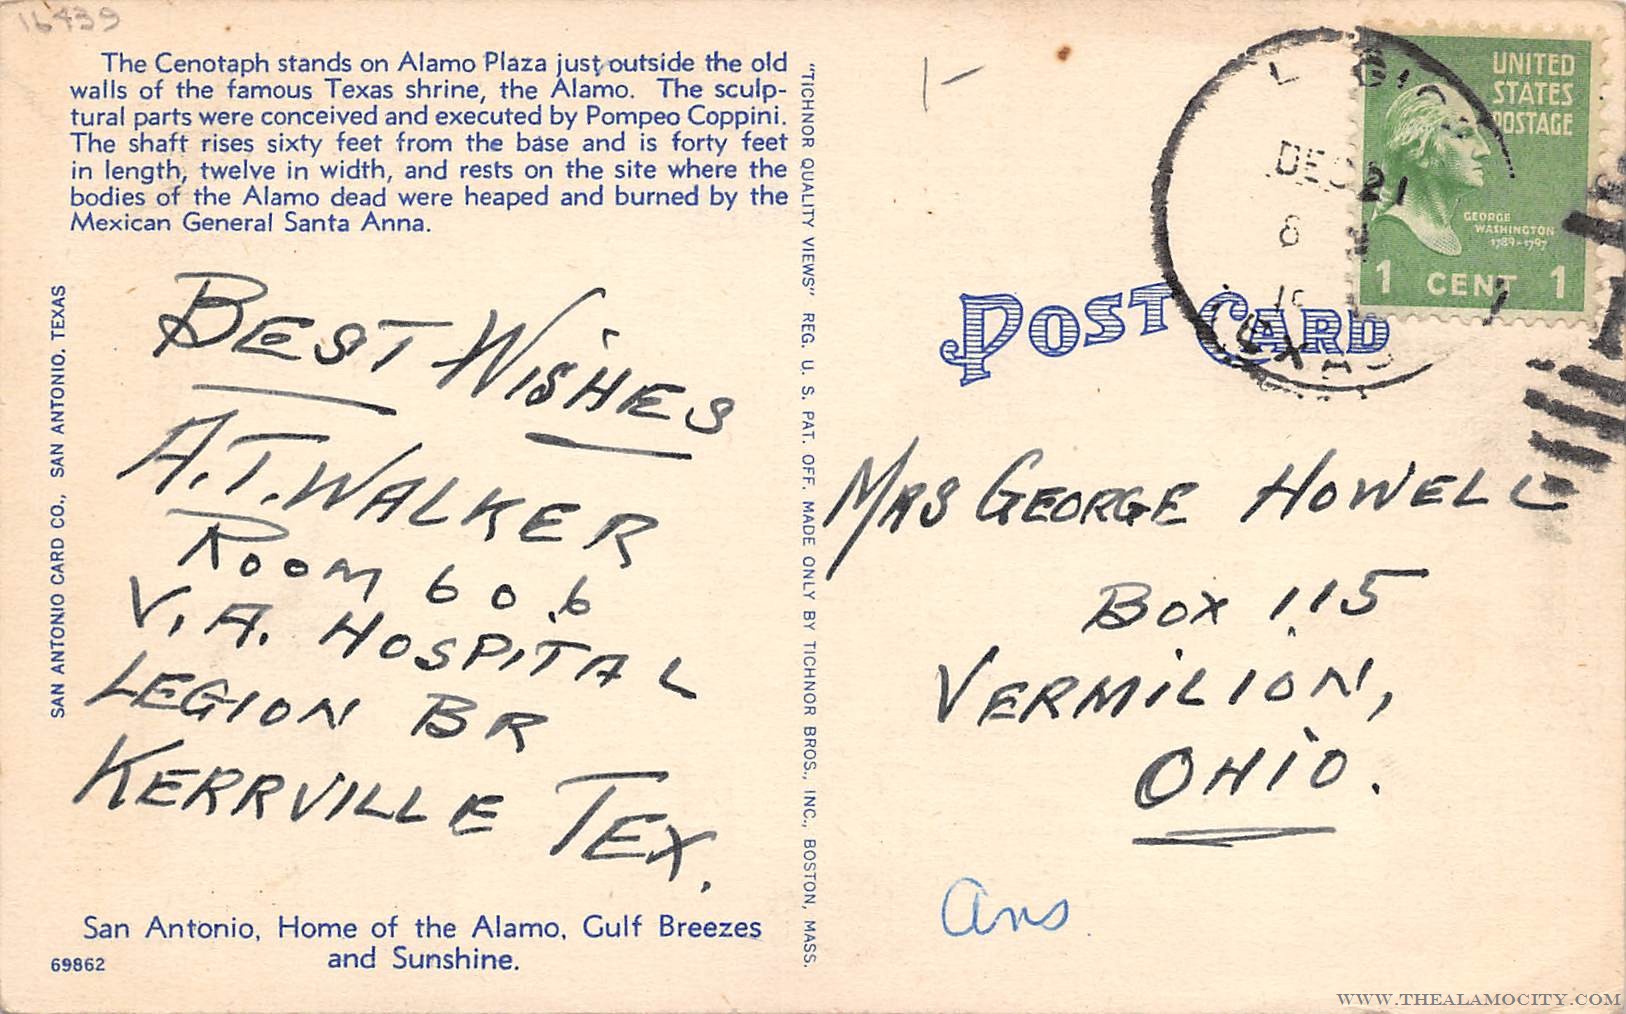 16439
The Cenotaph stands on Alamo Plaza just outside the old
walls of the famous Texas shrine, the Alamo. The sculp-
tural parts were conceived and executed by Pompeo Coppini.
The shaft rises sixty feet from the base and is forty feet
in length, twelve in width, and rests on the site where the
bodies of the Alamo dead were heaped and burned by the
Mexican General Santa Anna.
BEST WISHES
A.T. WALKER
ROOM 606
V.A. HOSPITAL
LEGION BR
KERRVILLE TEX.
San Antonio, Home of the Alamo, Gulf Breezes
and Sunshine.
69862
SAN ANTONIO CARD CO., SAN ANTONIO, TEXAS
"TICHNOR QUALITY VIEWS" REG. U. S. PAT. OFF. MADE ONLY BY TICHNOR BROS., INC., BOSTON, MASS.
DEC 21
8
TEXAS
UNITED
STATES
POSTAGE
GEORGE
WASHINGTON
1789-1797
1 CENT 1
POST CARD
MRS GEORGE HOWELL
BOX 115
VERMILION,
OHIO.
Ans
WWW.THEALAMOCITY.COM